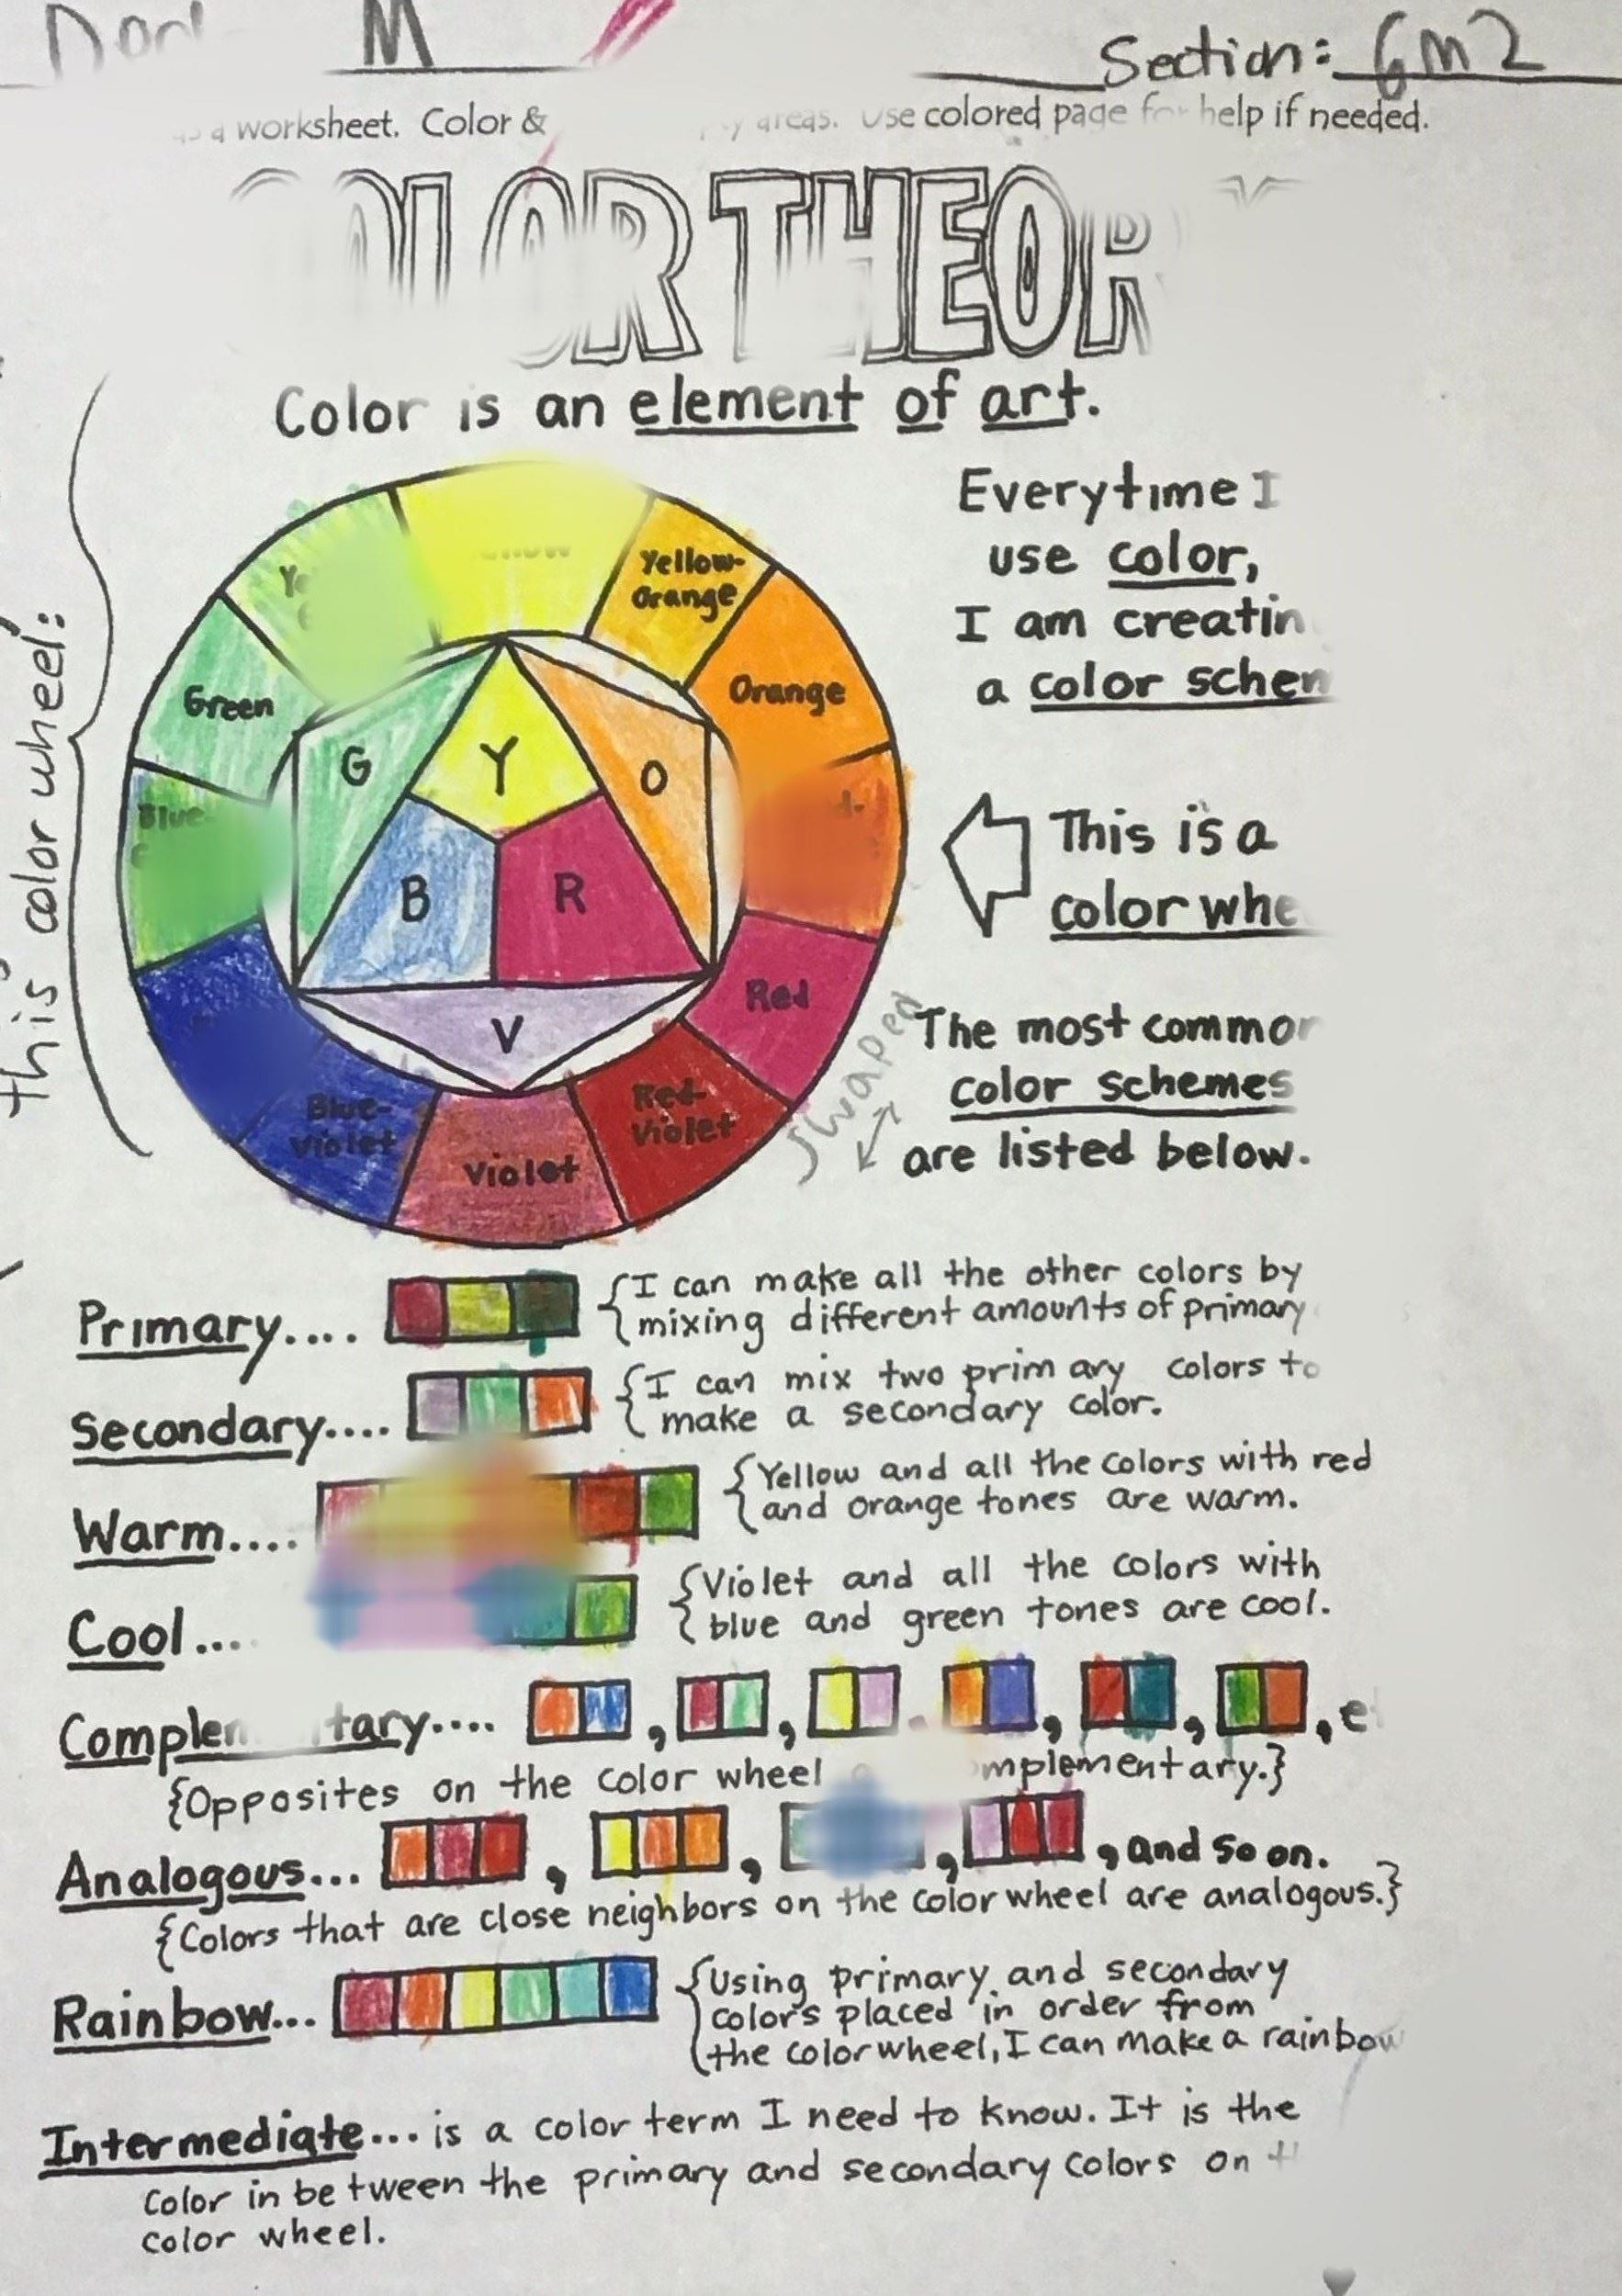 M
Section: 6m2
a worksheet. Color & areas. Use colored page for help if needed.
COLOR THEORY
Color is an element of art.
this color wheel:
Everytime I
use color,
I am creatin
a color schem
This is a
color whe
The most common
color schemes
are listed below.
swaped
Yellow-
Orange
Orange
Green
Blue-
Red
Red-
Violet
Violet
Blue-
Violet
G
Y
O
B
R
V
Primary.... {I can make all the other colors by
mixing different amounts of primary
Secondary.... {I can mix two primary colors to
make a secondary color.
Warm.... {Yellow and all the colors with red
and orange tones are warm.
Cool.... {Violet and all the colors with
blue and green tones are cool.
Complen tary.... , , , , , ,
{Opposites on the color wheel mplementary.}
Analogous... , , , and so on.
{Colors that are close neighbors on the color wheel are analogous.}
Rainbow... {Using primary and secondary
colors placed in order from
the color wheel, I can make a rainbow
Intermediate... is a color term I need to know. It is the
color in between the primary and secondary colors on
color wheel.